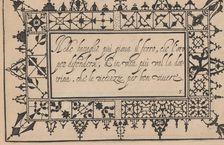 Che battaglia più giova il ferro, che l'oro
per difendersi, Et in vita più val la dot
trina, che le richezze per ben vivere.